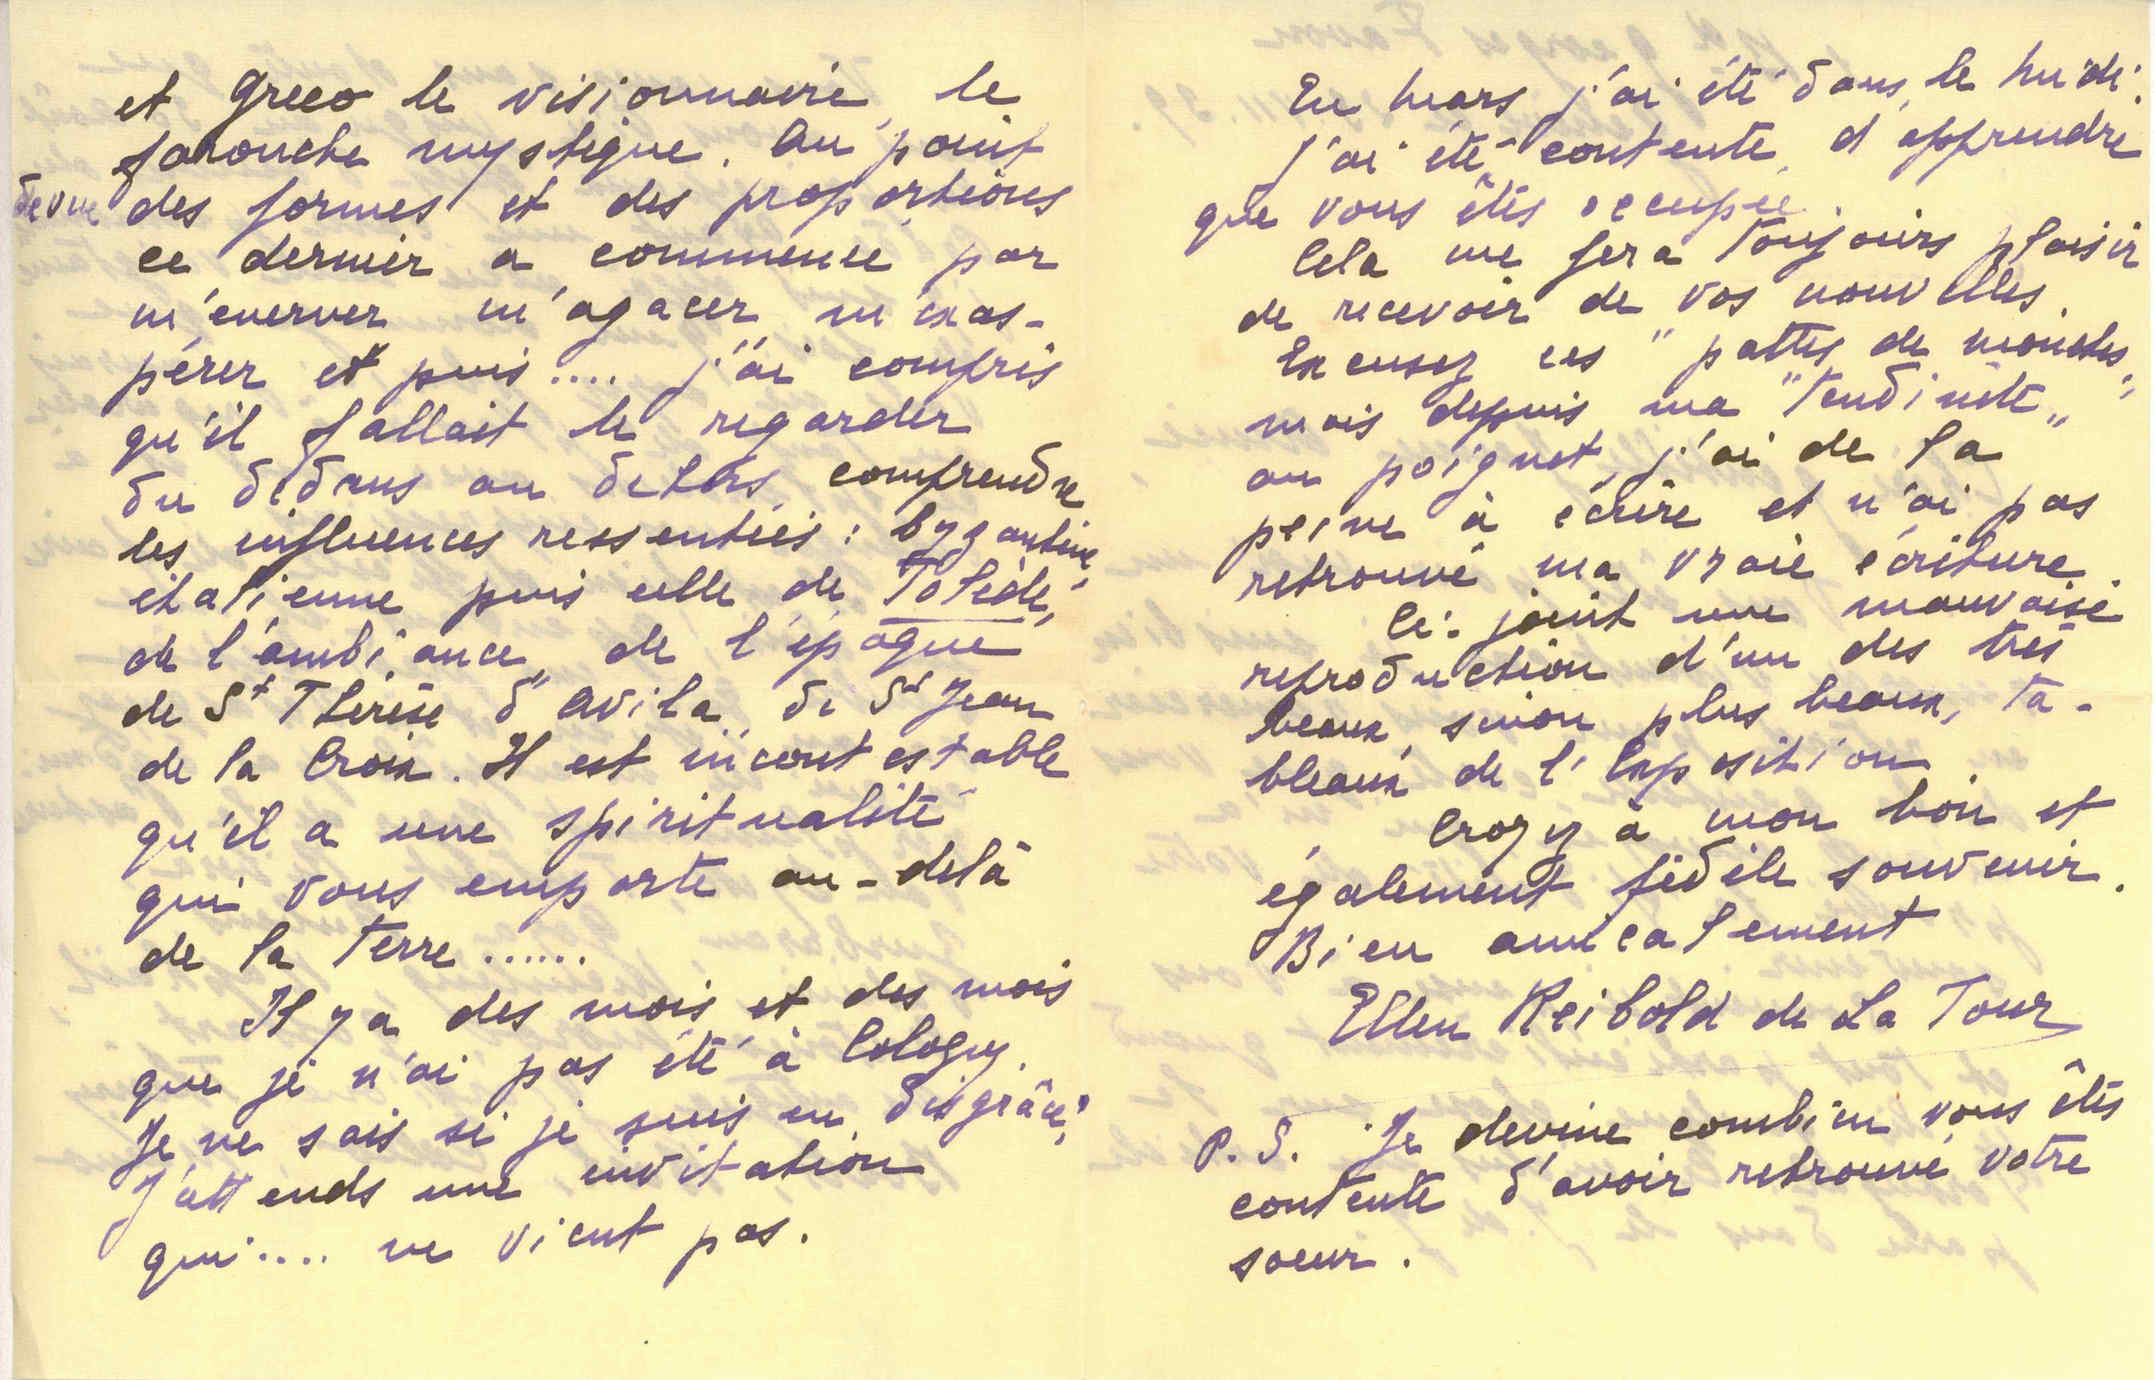 et Greco le visionnaire, le
farouche mystique. Au point
de vue des formes et des proportions
ce dernier a commencé par
m'énerver m'agacer m'exas-
pérer et puis.... j'ai compris
qu'il fallait le regarder
du dedans au dehors, comprendre
les influences ressenties : byzantine,
italienne, puis celle de Tolède,
de l'ambiance, de l'époque
de St Thérèse d'Avila, de St Jean
de la Croix. Il est incontestable
qu'il a une spiritualité
qui vous emporte au-delà
de la terre......
Il y a des mois et des mois
que je n'ai pas été à Cologny.
Je ne sais si je suis en disgrâce?
J'attends une invitation
qui.... ne vient pas.
En mars j'ai été dans le midi.
J'ai été contente d'apprendre
que vous êtes occupée.
Cela me fera toujours plaisir
de recevoir de vos nouvelles.
Excusez ces "pattes de mouches"
mais depuis ma "tendinite"
au poignet, j'ai de la
peine à écrire et n'ai pas
retrouvé ma vraie écriture.
Ci-joint une mauvaise
reproduction d'un des très
beaux, sinon plus beaux, ta-
bleaux de l'Exposition.
Croyez à mon bon et
également fidèle souvenir.
Bien amicalement
Ellen Reibold de La Tour
P.S. Je devine combien vous êtes
contente d'avoir retrouvé votre
soeur.